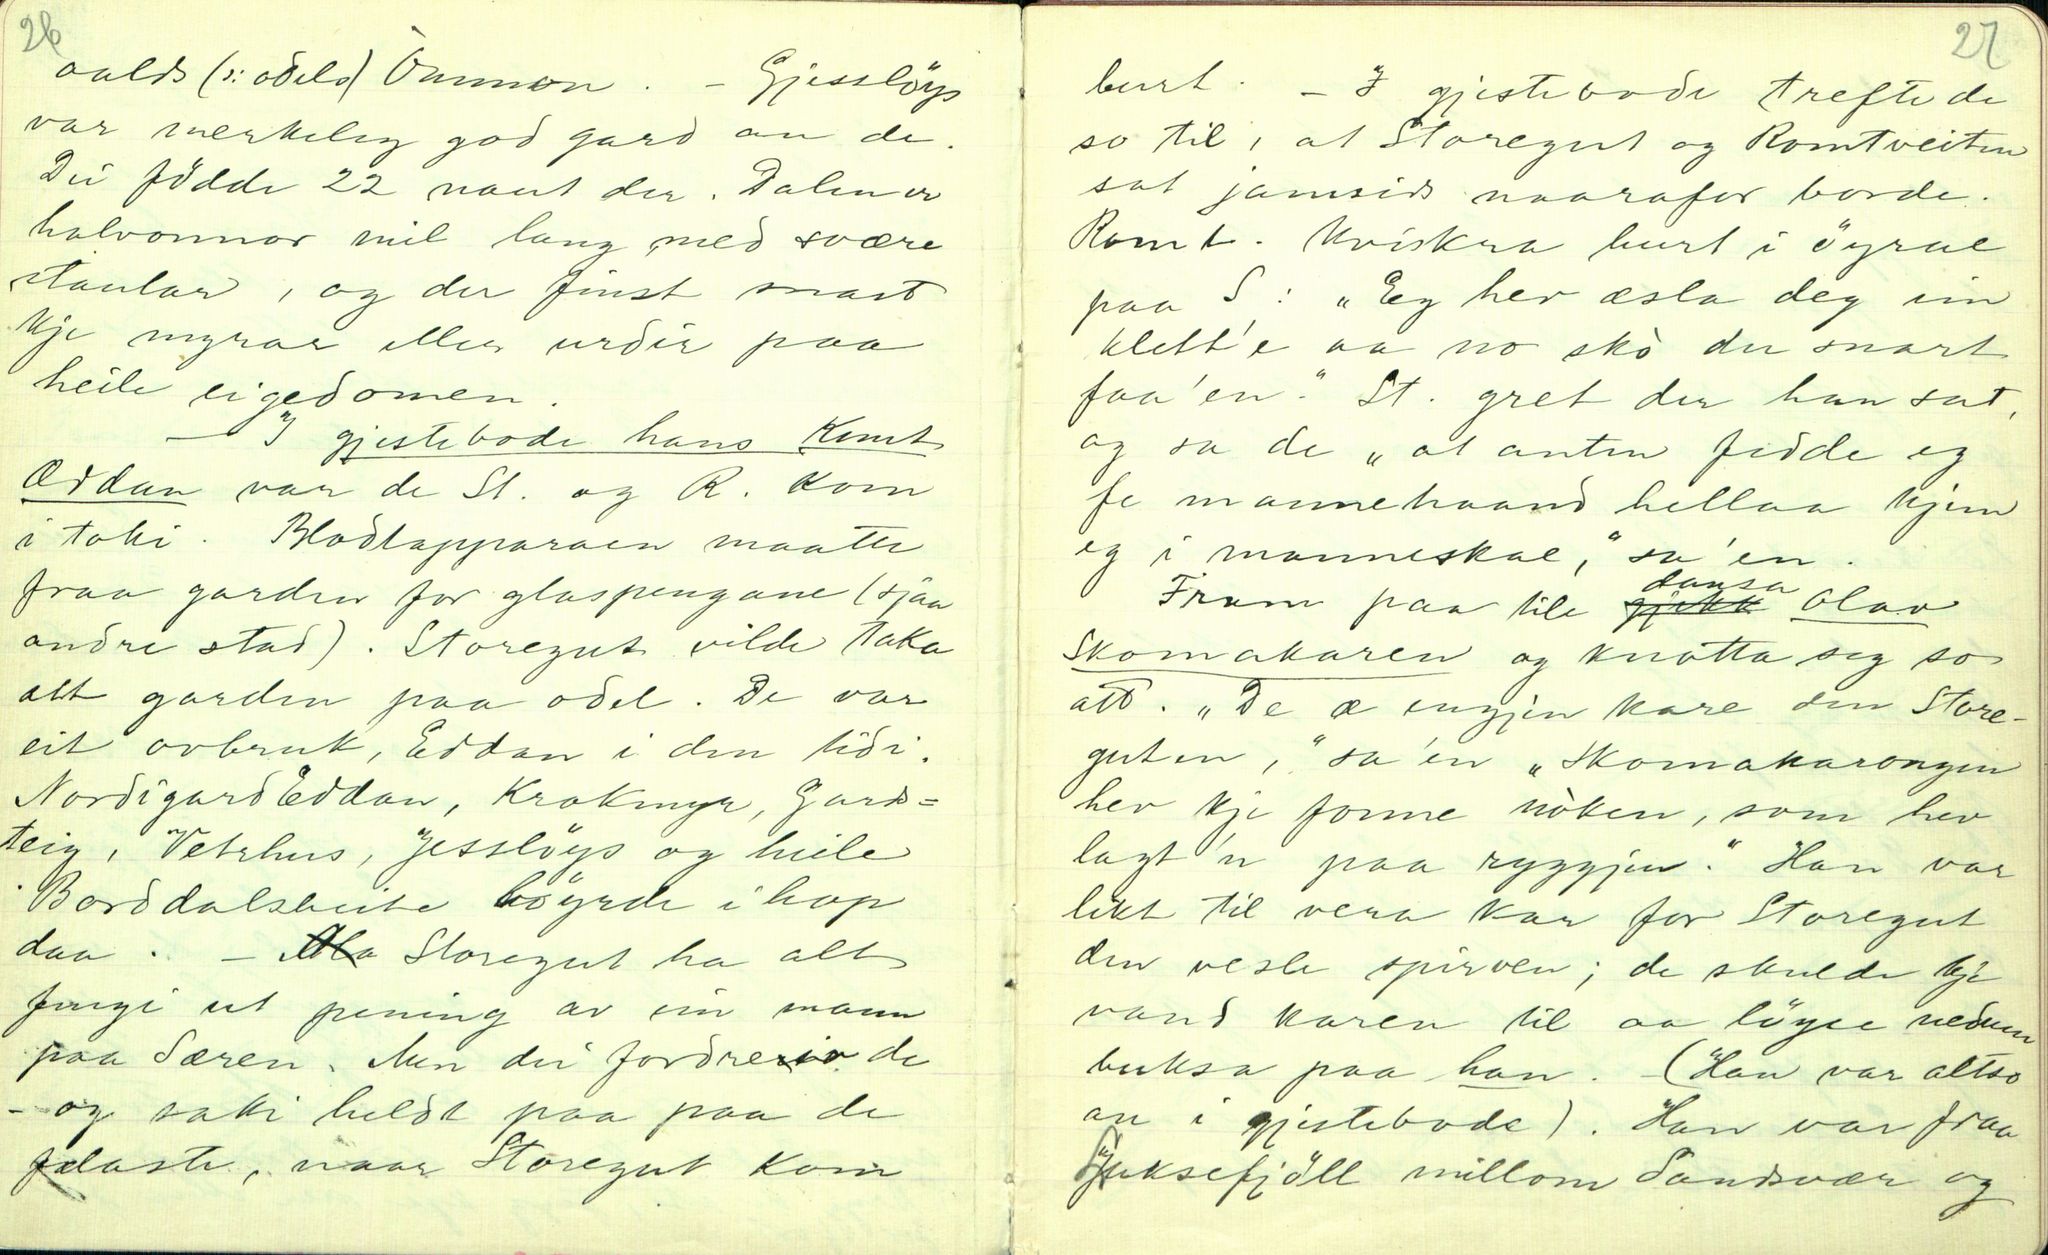 26
aalds (ɔ: odels) Ònnmon. - Gjesslöys
var merkeleg god gard an de.
Dei födde 22 naut der. Dalen er
halvonnor mil lang med svære
staular, og der finst snart
kje myrar eller urdir paa
heile eigedomen.
- I gjestebode hans Knut
Eddan var de St. og R. kom
i taki. Blodtapparaen maatte
fraa garden for glaspengane (sjaa
andre stad). Storegut vilde taka
att garden paa odel. De var
eit ovbruk, Eddan i den tidi.
NordigardEddan, Krakmyr, Gards=
teig, Vetrhus, Jesslöys og heile
Borddalsheite höyrde i hop
daa. - Storegut ha alt
fengi ut pening av ein mann
paa Særen. Men dei fordre de
- og saki heldt paa paa de
flaste, naar Storegut kom
27
burt. - I gjestebode trefte de
so til, at Storegut og Romtveiten
sat jamsids naarafor borde.
Romt. kviskra burt i öyrae
paa S: "Eg hev æsla deg ein
klett'e aa no skò du snart
faa'en." St. gret der han sat,
og sa de "at anten fedde eg
fe mannehaand hellaa kjem
eg i manneskae," sa'en.
Fram paa tile gjekk dansa Olav
Skomakaren og knotta seg so
att. "De æ engjen kare den Store-
guten," sa'en "Skomakarongen
hev kje fonne nòken, som hev
lagt'n paa ryggjen." Han var
likt til vera kar for Storegut
den vesle spirven; de skulde kje
vand karen til aa löyse nedum
buksa paa han. - (Han var altso
an i gjestebode). Han var fraa
Juksefjöll millom Sandsvær og